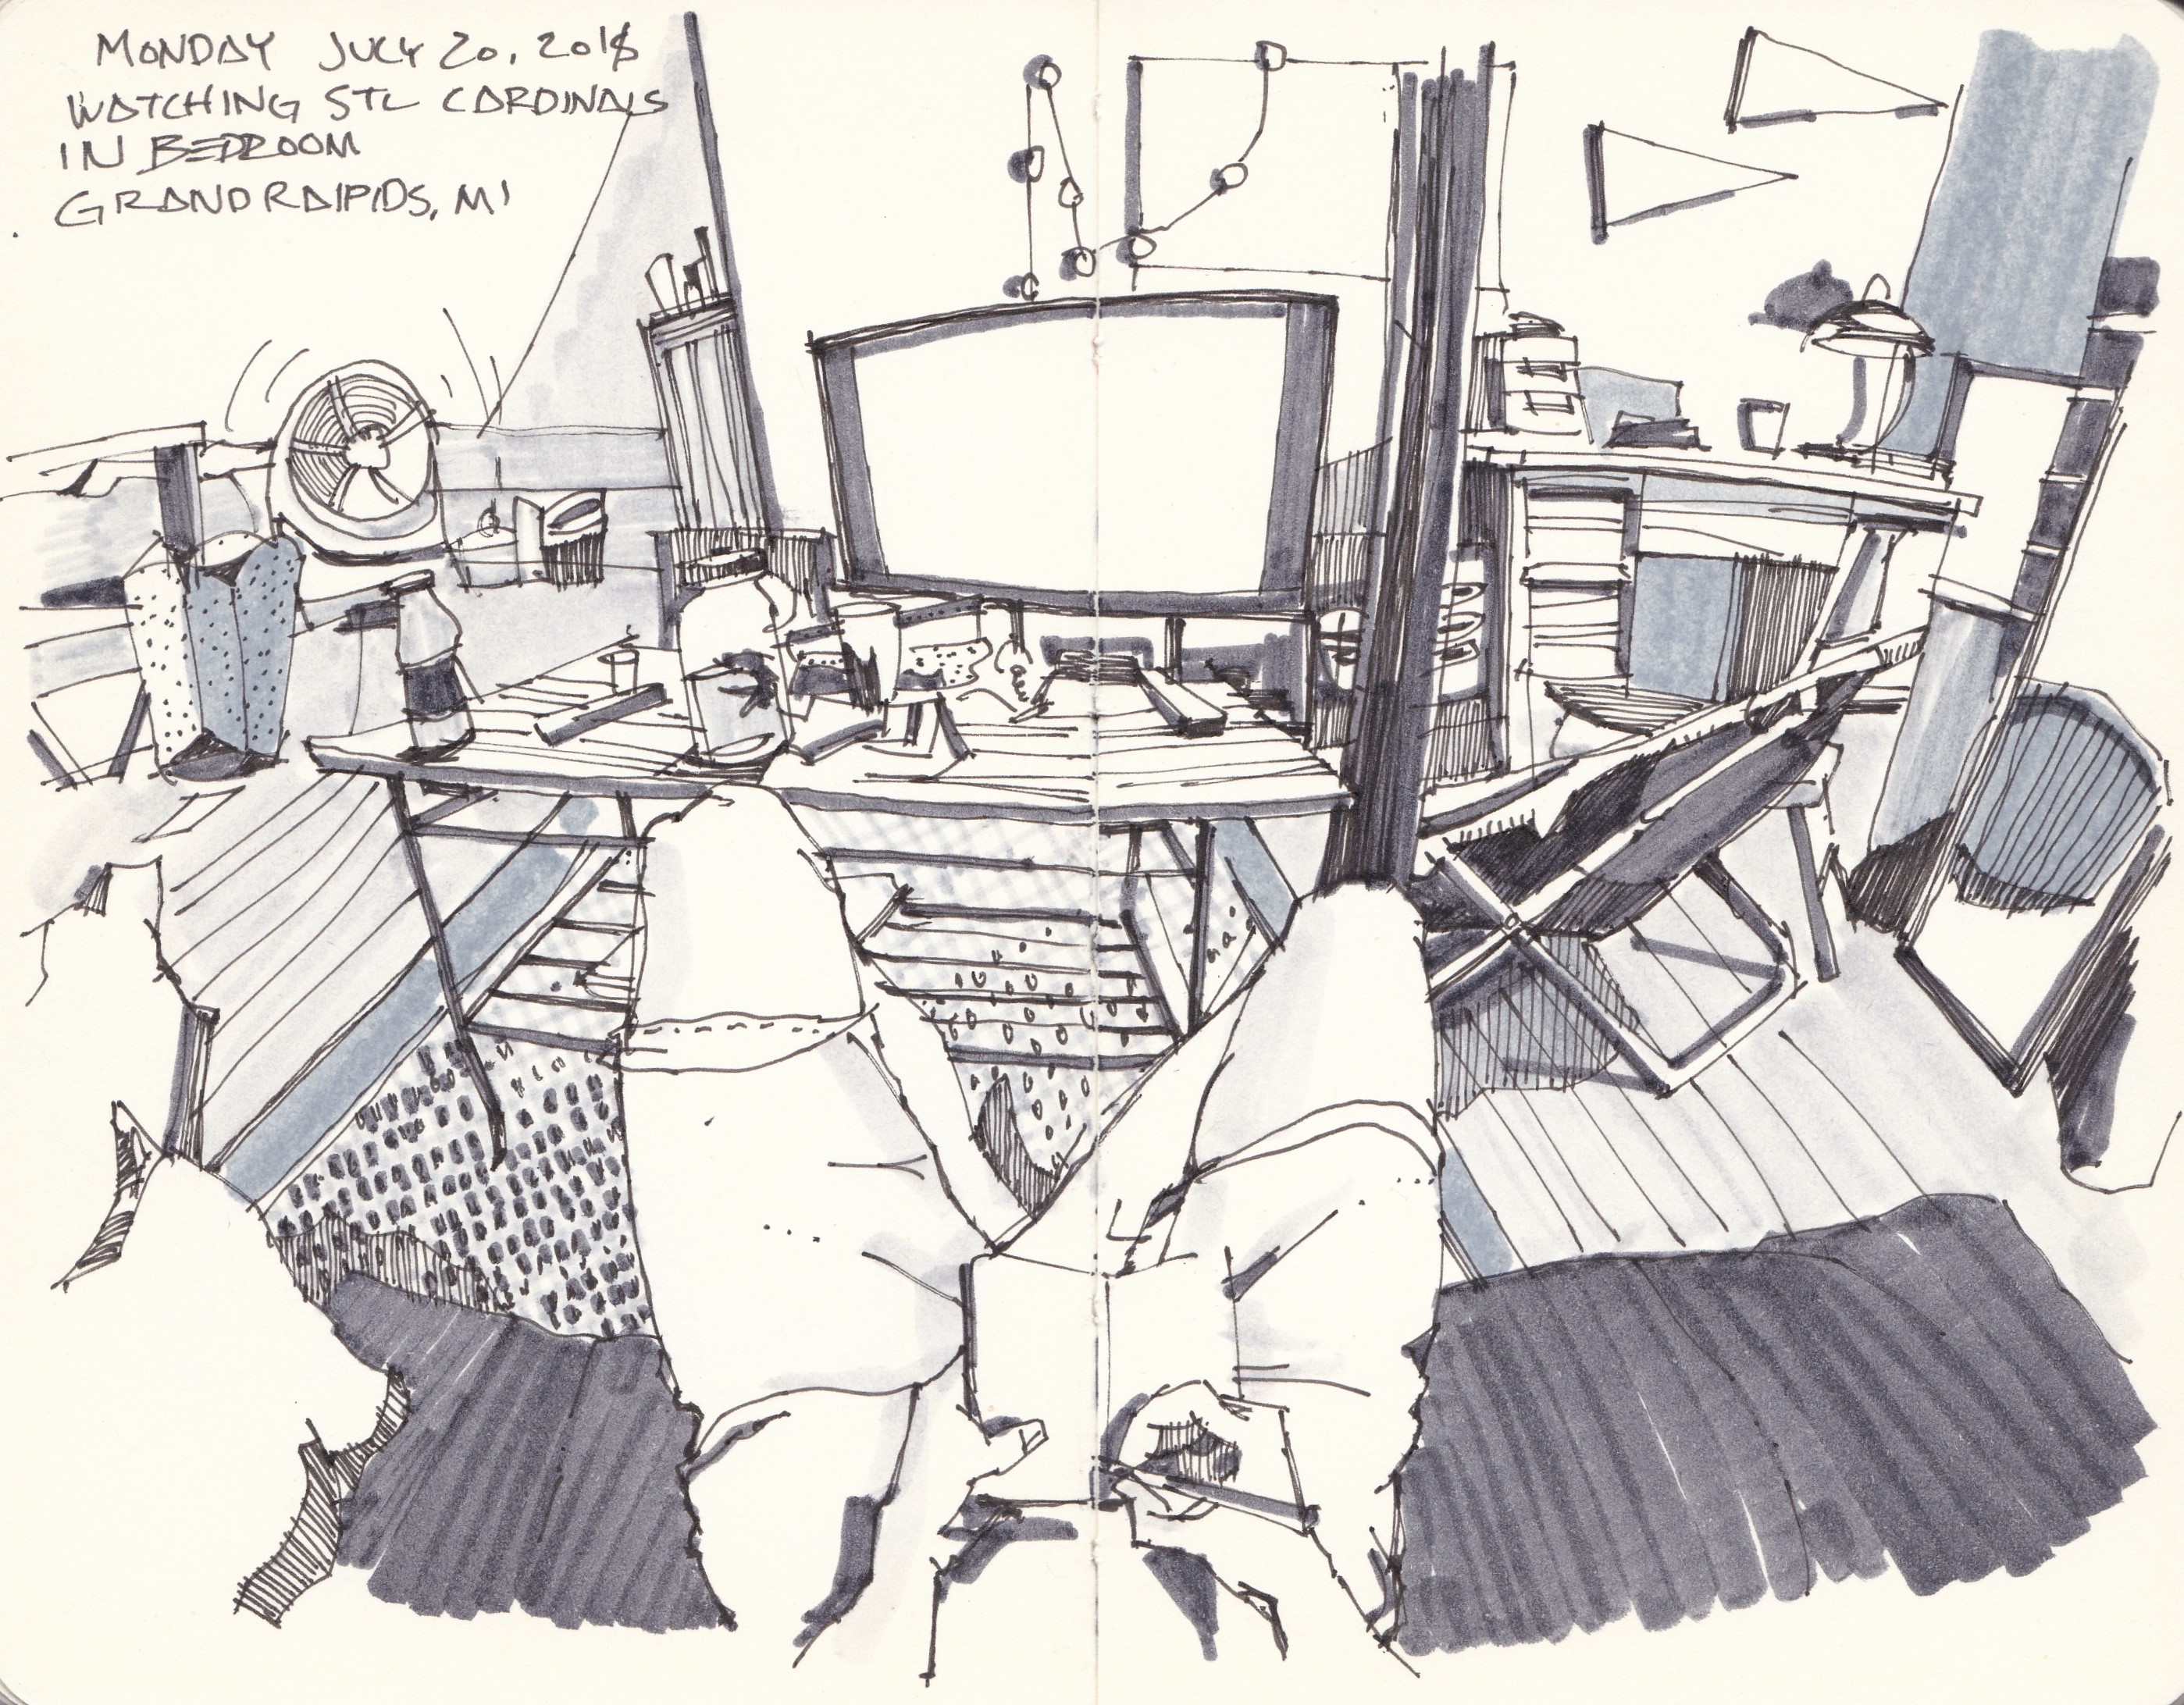 MONDAY JULY 20, 2015
WATCHING STL CARDINALS
IN BEDROOM
GRAND RAIPIDS, MI